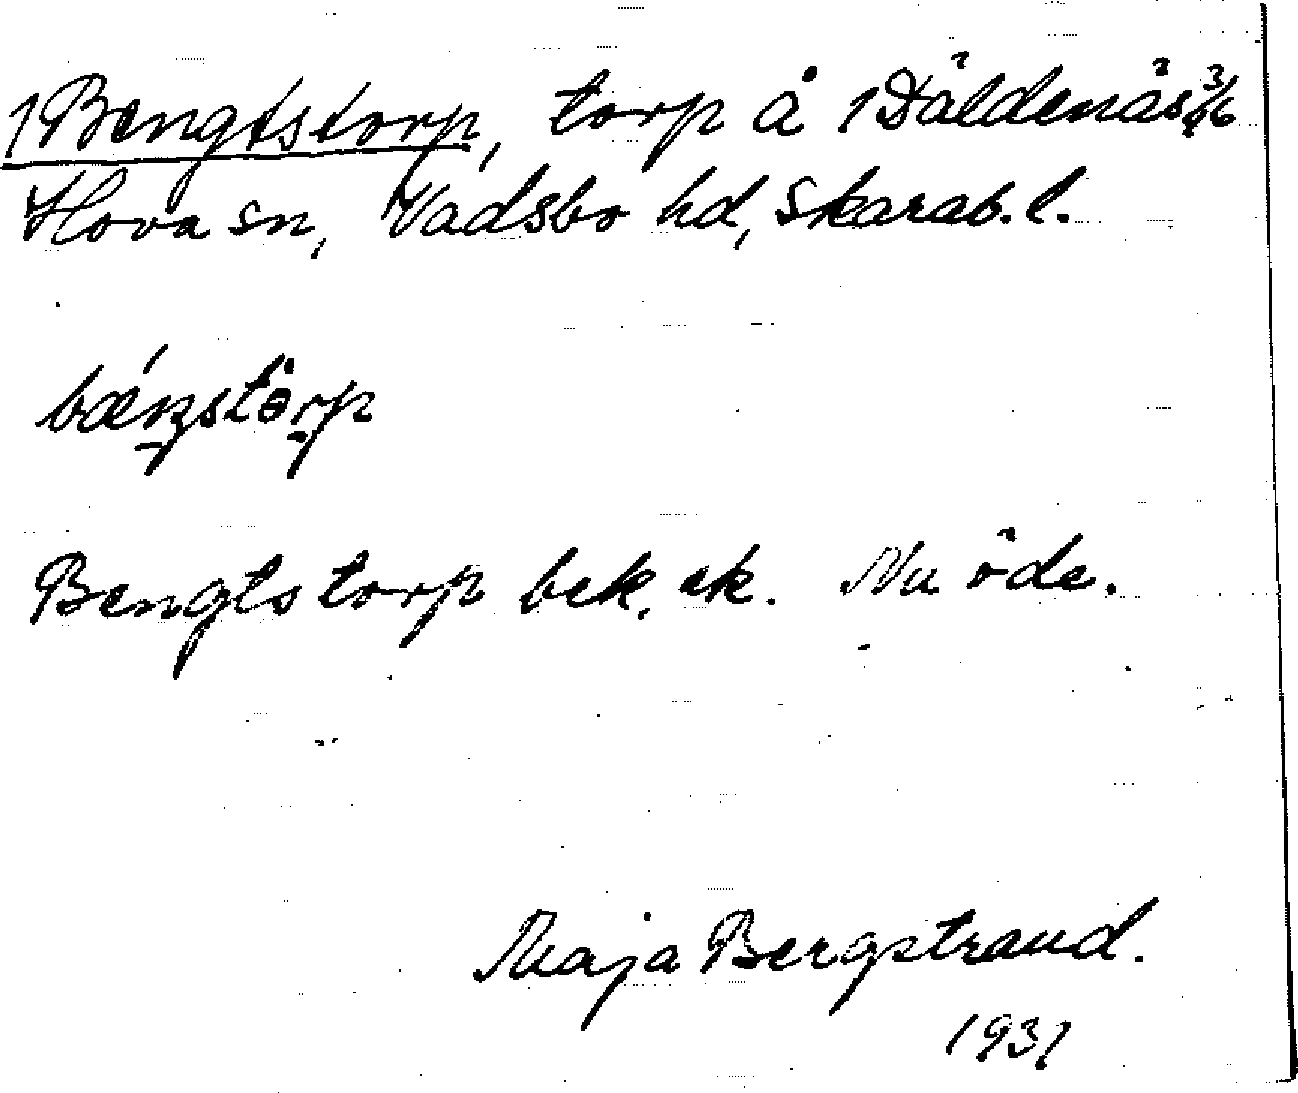 1 Bengtstorp, torp å 1 Däldenäs 3/16
Hova sn, Vadsbo hd, Skarab. l.
bæŋstɵrp
Bengtstorp bek. ek. Nu öde.
Maja Bergstrand.
1931